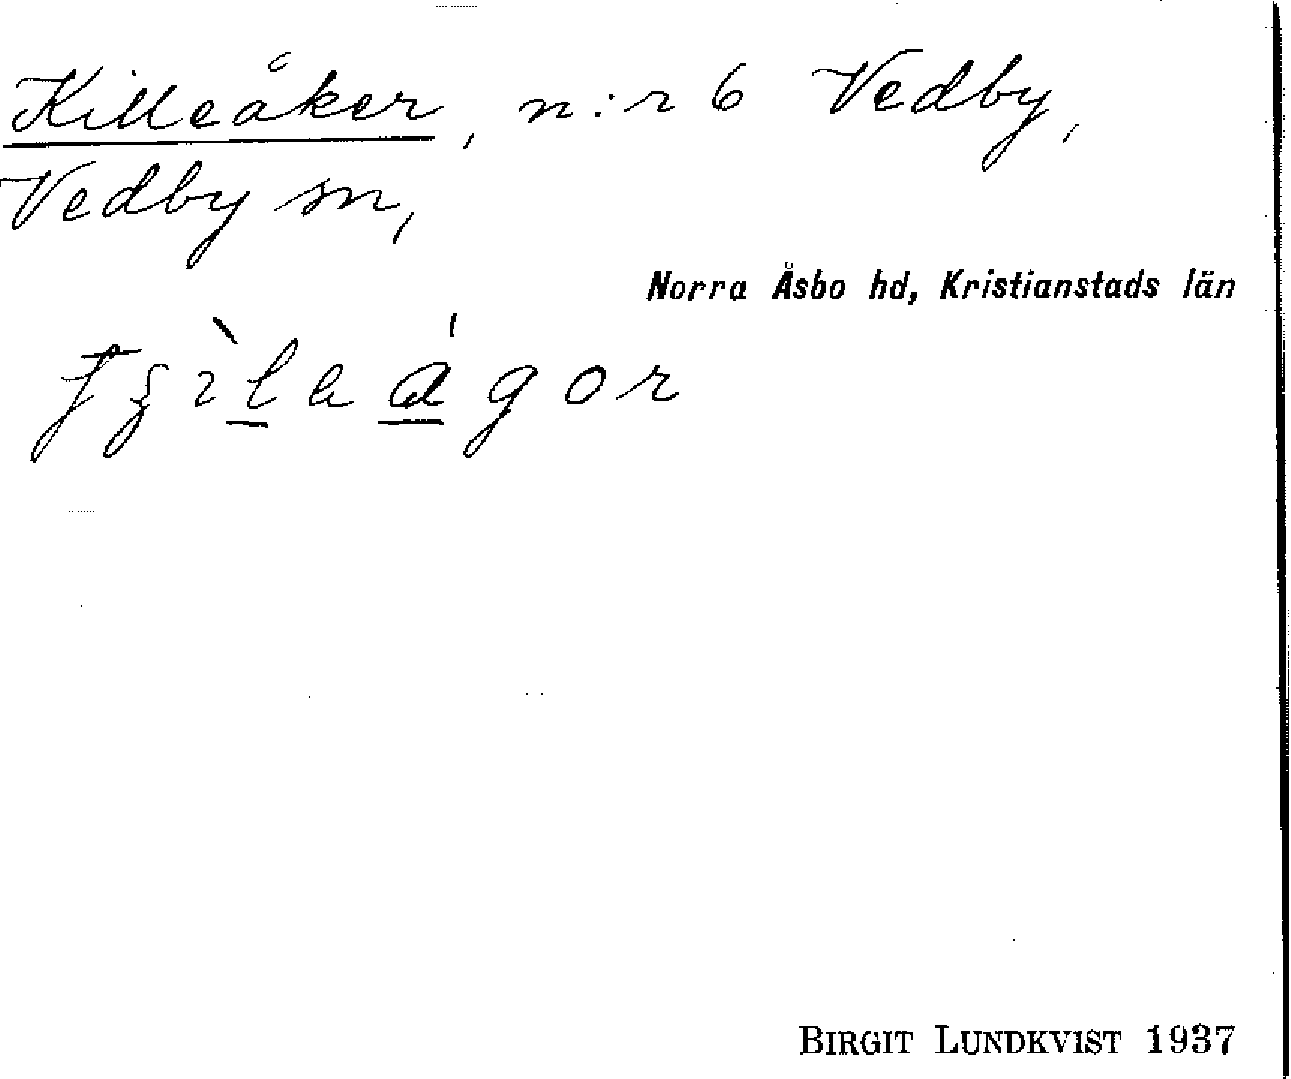 Killeåker, n:r 6 Vedby,
Vedby sn,
Norra Åsbo hd, Kristianstads län
BIRGIT LUNDKVIST 1937